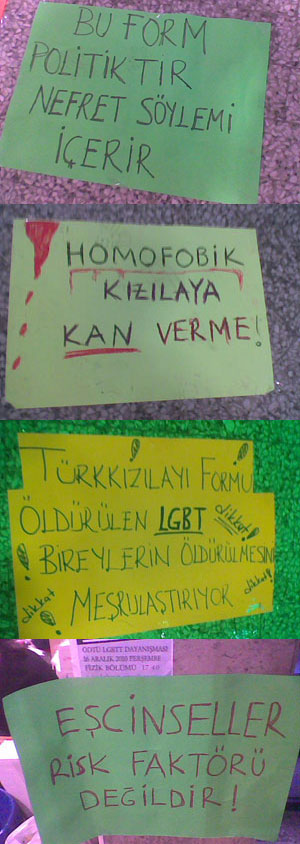 BU FORM
POLİTİKTİR
NEFRET SÖYLEMİ
İÇERİR
HOMOFOBİK
KIZILAYA
KAN VERME!
TÜRKKIZILAYI FORMU
ÖLDÜRÜLEN LGBT dikkat!
BİREYLERİN ÖLDÜRÜLMESİN
dikkat MEŞRULAŞTIRIYOR dikkat!
ODTÜ LGBTT DAYANIŞMASI
16 ARALIK 2010 PERŞEMBE
FİZİK BÖLÜMÜ 17:40
EŞCİNSELLER
RİSK FAKTÖRÜ
DEĞİLDİR!